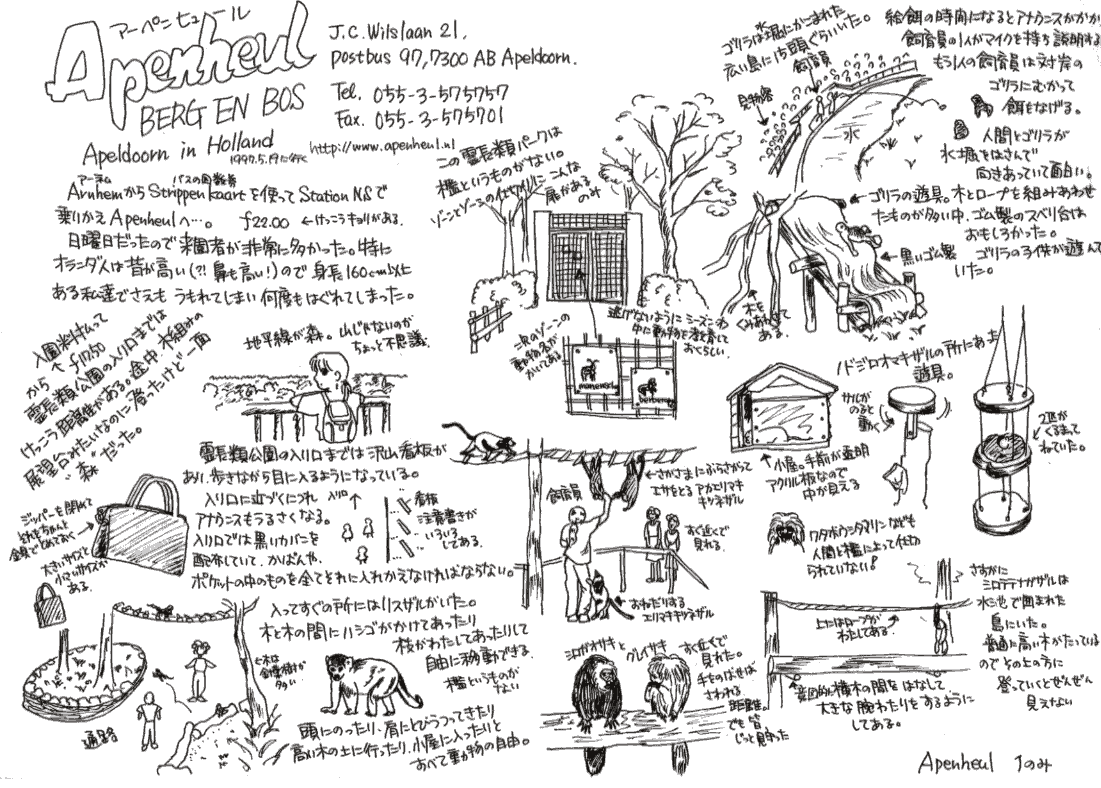 アーペンヒュール
Apenheul
BERG EN BOS
Apeldoorn in Holland
1997.5.19に行く
J.C.Wilslaan 21,
postbus 97,7300 AB Apeldoorn.
Tel. 055-3-575757
Fax. 055-3-575701
http://www.apenheul.nl
アーネム
バスの回数券
ArnhemからStrippenkaartを使ってStation NSで
乗りかえApenheulへ…。 f22.00 ←けっこうキョリがある。
日曜日だったので来園者が非常に多かった。特に
オランダ人は背が高い(?!鼻も高い!)ので身長160cm以上
ある私達でさえもうもれてしまい何度もはぐれてしまった。
入園料払って
f17.50
から
霊長類公園の入り口までは
けっこう距離がある。途中、木組みの
展望台みたいなのに登ったけど一面
"森"だった。
地平線が森。山じゃないのが
ちょっと不思議
霊長類公園の入り口までは沢山看板が
あり、歩きながら目に入るようになっている。
入り口に近づくにつれ
アナウンスもうるさくなる。
入り口では黒いカバンを
配布していて、かばんや、
ポケットの中のものを全てそれに入れかえなければならない。
入り口
看板
注意書きが
いろいろ
してある。
ジッパーを閉めて
金具でとめておく
大きいサイズと
小さいサイズが
ある。
入ってすぐの所にはリスザルがいた。
木と木の間にハシゴがかけてあったり
枝がわたしてあったりして
自由に移動できる。
檻というものが
ない
通路
頭にのったり、肩にとびうつってきたり
高い木の上に行ったり、小屋に入ったりと
すべて動物の自由。
この霊長類パークは
檻というものがない。
ゾーンとゾーンの仕切りにこんな
扉がある
のみ
次のゾーンの
動物名が
かいてある
ゴリラは水堀にかこまれた
広い島に15頭ぐらいいた。
飼育員
見物客
水
給餌の時間になるとアナウンスがかかり
飼育員の1人がマイクを持ち説明する
もう1人の飼育員は対岸の
ゴリラにむかって
餌をなげる。
人間とゴリラが
水堀をはさんで
向きあっていて面白い。
←ゴリラの遊具。木とロープを組みあわせ
たものが多い中、ゴム製のスベリ台は
おもしろかった。
←黒いゴム製
ゴリラの子供が遊んで
いた。
木を
くみあわせて
ある。
ノドジロオマキザルの所にあった
遊具。
サルが
のると
動く
2匹が
くるまって
ねていた。
小屋。手前が透明
アクリル板なので
中が見える
←さかさまにぶらさがって
エサをとるアカエリマキ
キツネザル
飼育員
すぐ近くで
見れる。
←おねだりする
エリマキキツネザル
ワタボウシタマリンなども
人間と檻によって仕切
られていない!
シロガオサキと
グレイサキ
すぐ近くで
見れた。
手をのばせば
さわれる
距離。
でも皆
じっと見守った
さすがに
シロテテナガザルは
水池で囲まれた
島にいた。
普通に高い木がたっている
のでその上の方に
登っていくとぜんぜん
見えない
上にはロープが
わたしてある。
意図的に横木の間をはなして
大きな腕わたりをするように
してある。
Apenheul 1のみ